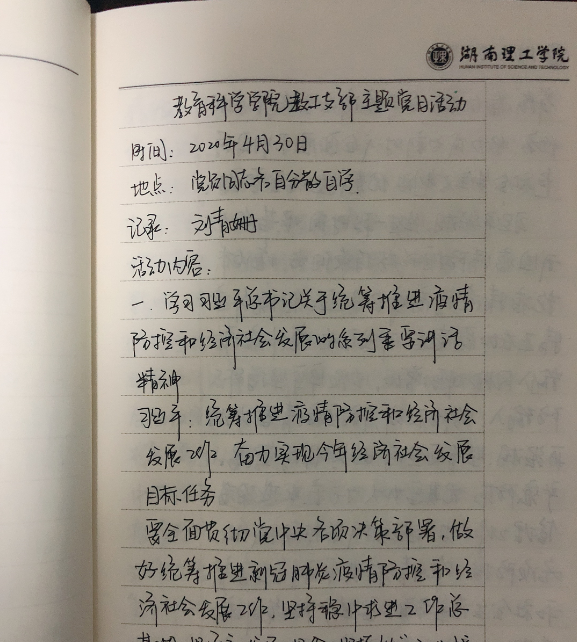 湖南理工学院
HUNAN INSTITUTE OF SCIENCE AND TECHNOLOGY
教育科学学院教工支部主题党日活动
时间：2020年4月30日
地点：党员居家各自分散自学.
记录：刘青姗
活动内容：
一．学习习近平总书记关于统筹推进疫情
防控和经济社会发展的系列重要讲话
精神
习近平：统筹推进疫情防控和经济社会
发展工作 奋力实现今年经济社会发展
目标任务
要全面贯彻党中央各项决策部署，做
好统筹推进新冠肺炎疫情防控和经
济社会发展工作，坚持稳中求进工作总